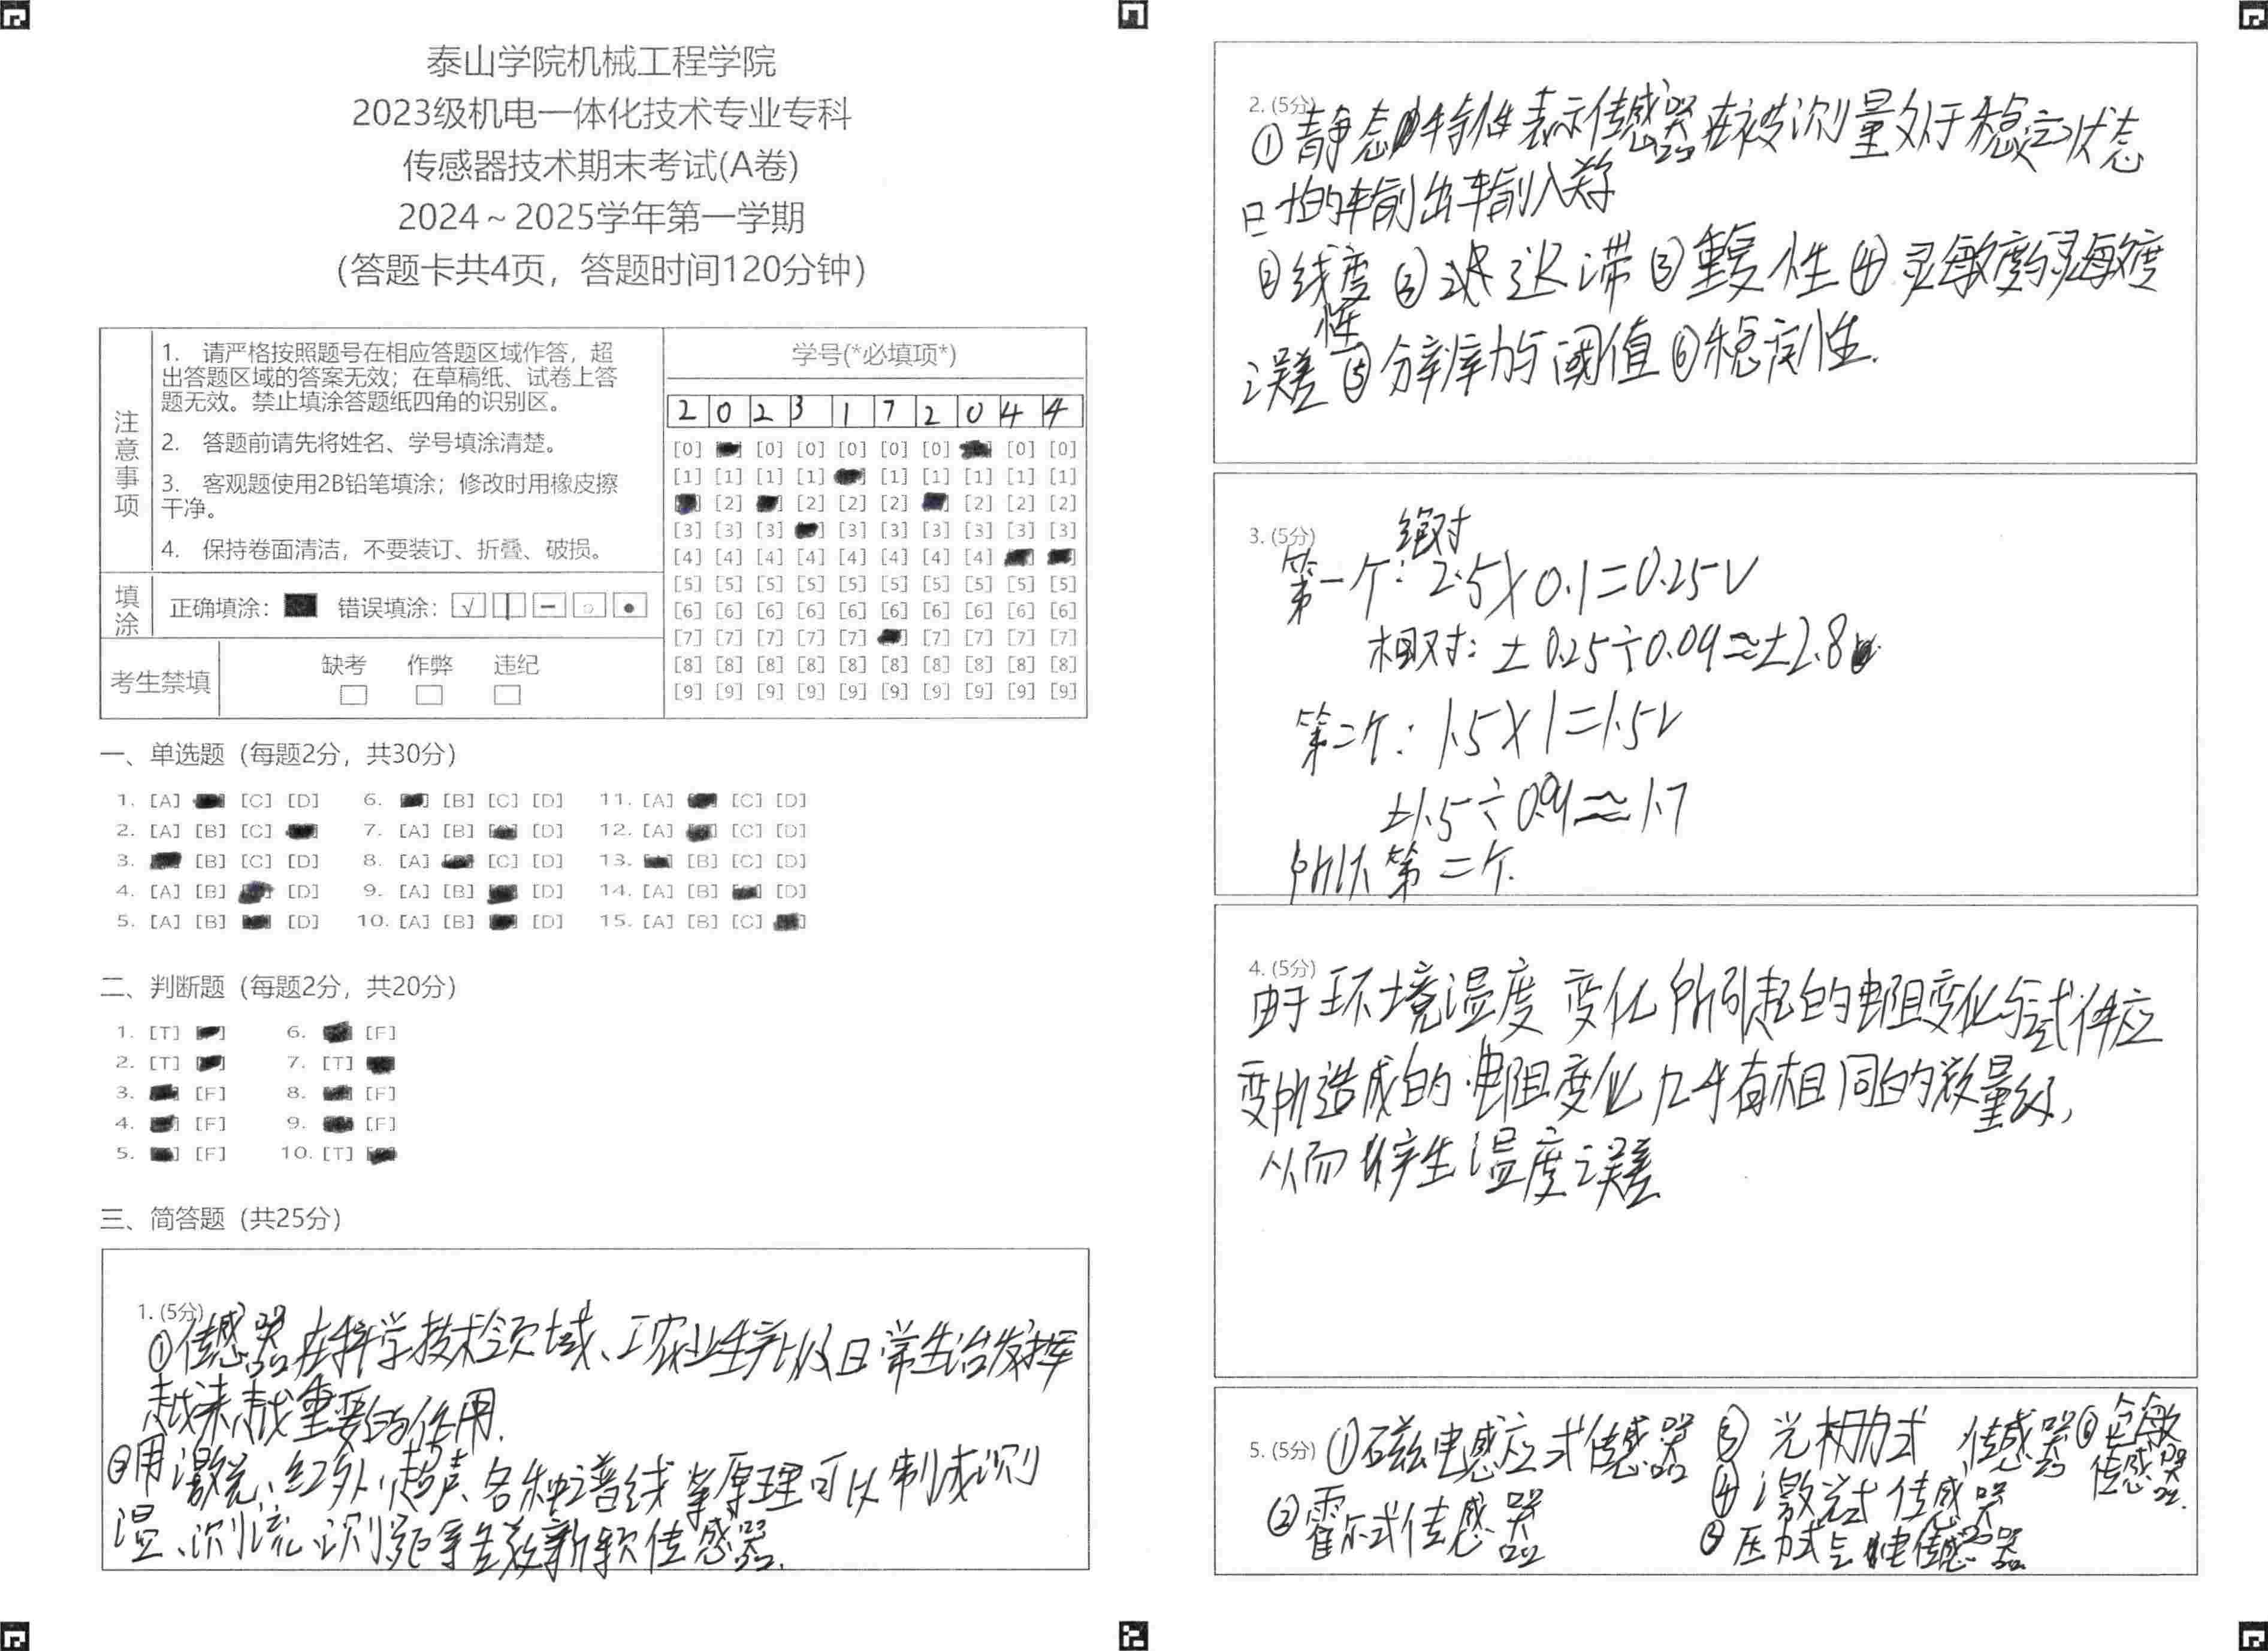 泰山学院机械工程学院
2023级机电一体化技术专业专科
传感器技术期末考试(A卷)
2024～2025学年第一学期
(答题卡共4页，答题时间120分钟)
注意事项
1. 请严格按照题号在相应答题区域作答，超
出答题区域的答案无效；在草稿纸、试卷上答
题无效。禁止填涂答题纸四角的识别区。
2. 答题前请先将姓名、学号填涂清楚。
3. 客观题使用2B铅笔填涂；修改时用橡皮擦
干净。
4. 保持卷面清洁，不要装订、折叠、破损。
填涂 正确填涂： 错误填涂：
考生禁填 缺考 作弊 违纪
学号(*必填项*)
2 0 2 3 1 7 2 0 4 4
[0] [0] [0] [0] [0] [0] [0] [0]
[1] [1] [1] [1] [1] [1] [1] [1] [1]
[2] [2] [2] [2] [2] [2] [2]
[3] [3] [3] [3] [3] [3] [3] [3] [3]
[4] [4] [4] [4] [4] [4] [4] [4]
[5] [5] [5] [5] [5] [5] [5] [5] [5] [5]
[6] [6] [6] [6] [6] [6] [6] [6] [6] [6]
[7] [7] [7] [7] [7] [7] [7] [7] [7]
[8] [8] [8] [8] [8] [8] [8] [8] [8] [8]
[9] [9] [9] [9] [9] [9] [9] [9] [9] [9]
一、单选题（每题2分，共30分）
1. [A] [C] [D] 6. [B] [C] [D] 11. [A] [C] [D]
2. [A] [B] [C] 7. [A] [B] [D] 12. [A] [C] [D]
3. [B] [C] [D] 8. [A] [C] [D] 13. [B] [C] [D]
4. [A] [B] [D] 9. [A] [B] [D] 14. [A] [B] [D]
5. [A] [B] [D] 10. [A] [B] [D] 15. [A] [B] [C]
二、判断题（每题2分，共20分）
1. [T] 6. [F]
2. [T] 7. [T]
3. [F] 8. [F]
4. [F] 9. [F]
5. [F] 10. [T]
三、简答题（共25分）
1. (5分)
①传感器在科学技术领域、工农业生产以及日常生活发挥
越来越重要的作用.
②用激光、红外、超声、各种谱线等原理可以制成测
温、测流、测距等各效新颖传感器.
2. (5分)
①静态的特性表示传感器在被测量处于稳定状态
时的输出输入关系
②线性度 ②迟滞 ③重复性 ④灵敏度与灵敏度
误差 ⑤分辨率力与阈值 ⑥稳定性.
3. (5分)
第一个: 绝对 2.5×0.1=0.25V
相对: ±0.25÷0.09≈±2.8
第二个: 1.5×1=1.5V
±1.5÷0.9≈1.7
所以第二个.
4. (5分)
由于环境温度变化所引起的电阻变化与试件应
变所造成的电阻变化几乎有相同的数量级,
从而产生温度误差
5. (5分) ①磁电感应式传感器 ③光栅式传感器 ⑥气敏传感器.
②霍尔式传感器 ④激光式传感器
⑤压力式传感器